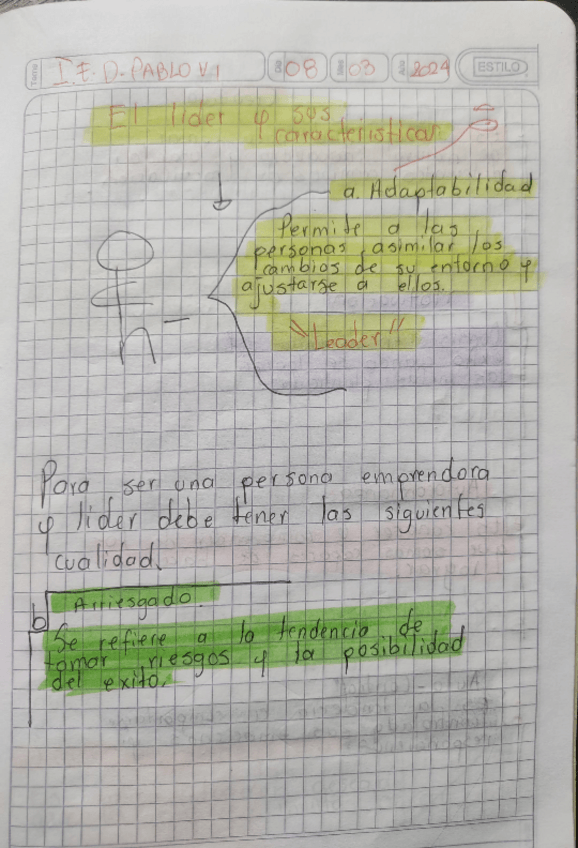 Tema I.E.D. PABLO VI Día 08 Mes 03 Año 2024 ESTILO
El lider y sus
caracteristicas
a. Adaptabilidad
Permite a las
personas asimilar los
cambios de su entorno y
ajustarse a ellos.
"Leader"
Para ser una persona emprendora
y lider debe tener las siguientes
cualidad.
b Arriesgado.
Se refiere a la tendencia de
tomar riesgos y la posibilidad
del exito.